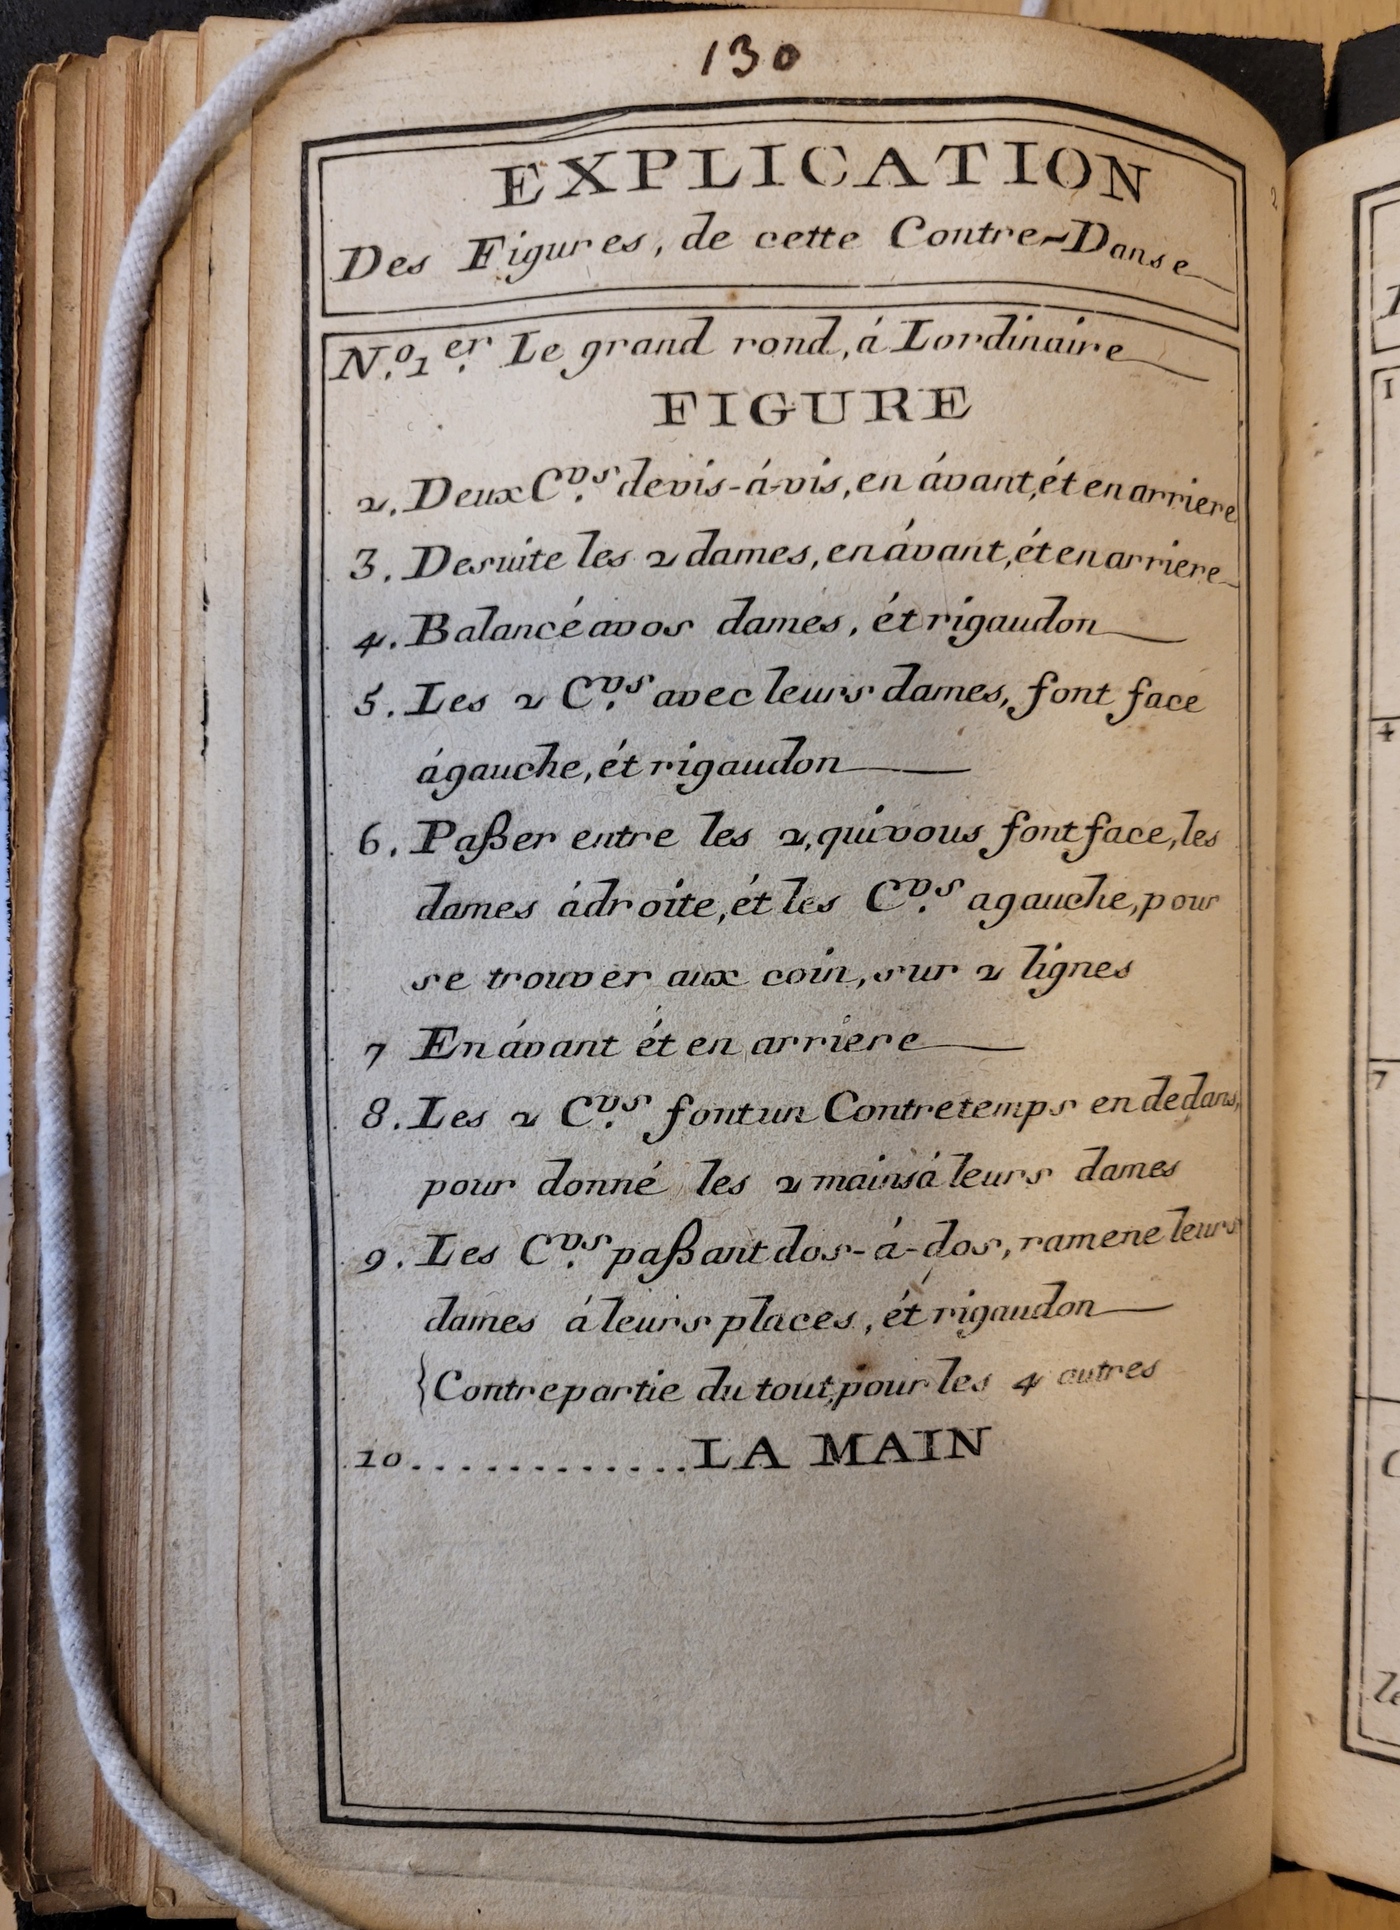 130
EXPLICATION
Des Figures, de cette Contre-Danse
N.º 1.er Le grand rond, á Lordinaire
FIGURE
2. Deux C.vs devis-á-vis, en ávant, ét en arriere
3. Desuite les 2 dames, en ávant, ét en arriere
4. Balancé avos dames, ét rigaudon
5. Les 2 C.vs avec leurs dames, font face
ágauche, ét rigaudon
6. Paßer entre les 2, qui vous font face, les
dames ádroite, ét les C.vs agauche, pour
se trouver aux coin, sur 2 lignes
7 En ávant ét en arriere
8. Les 2 C.vs font un Contretemps en dedans,
pour donné les 2 mains á leurs dames
9. Les C.vs paßant dos-á-dos, ramene leurs
dames á leurs places, ét rigaudon
{Contrepartie du tout, pour les 4 autres
10............LA MAIN
1
4
7